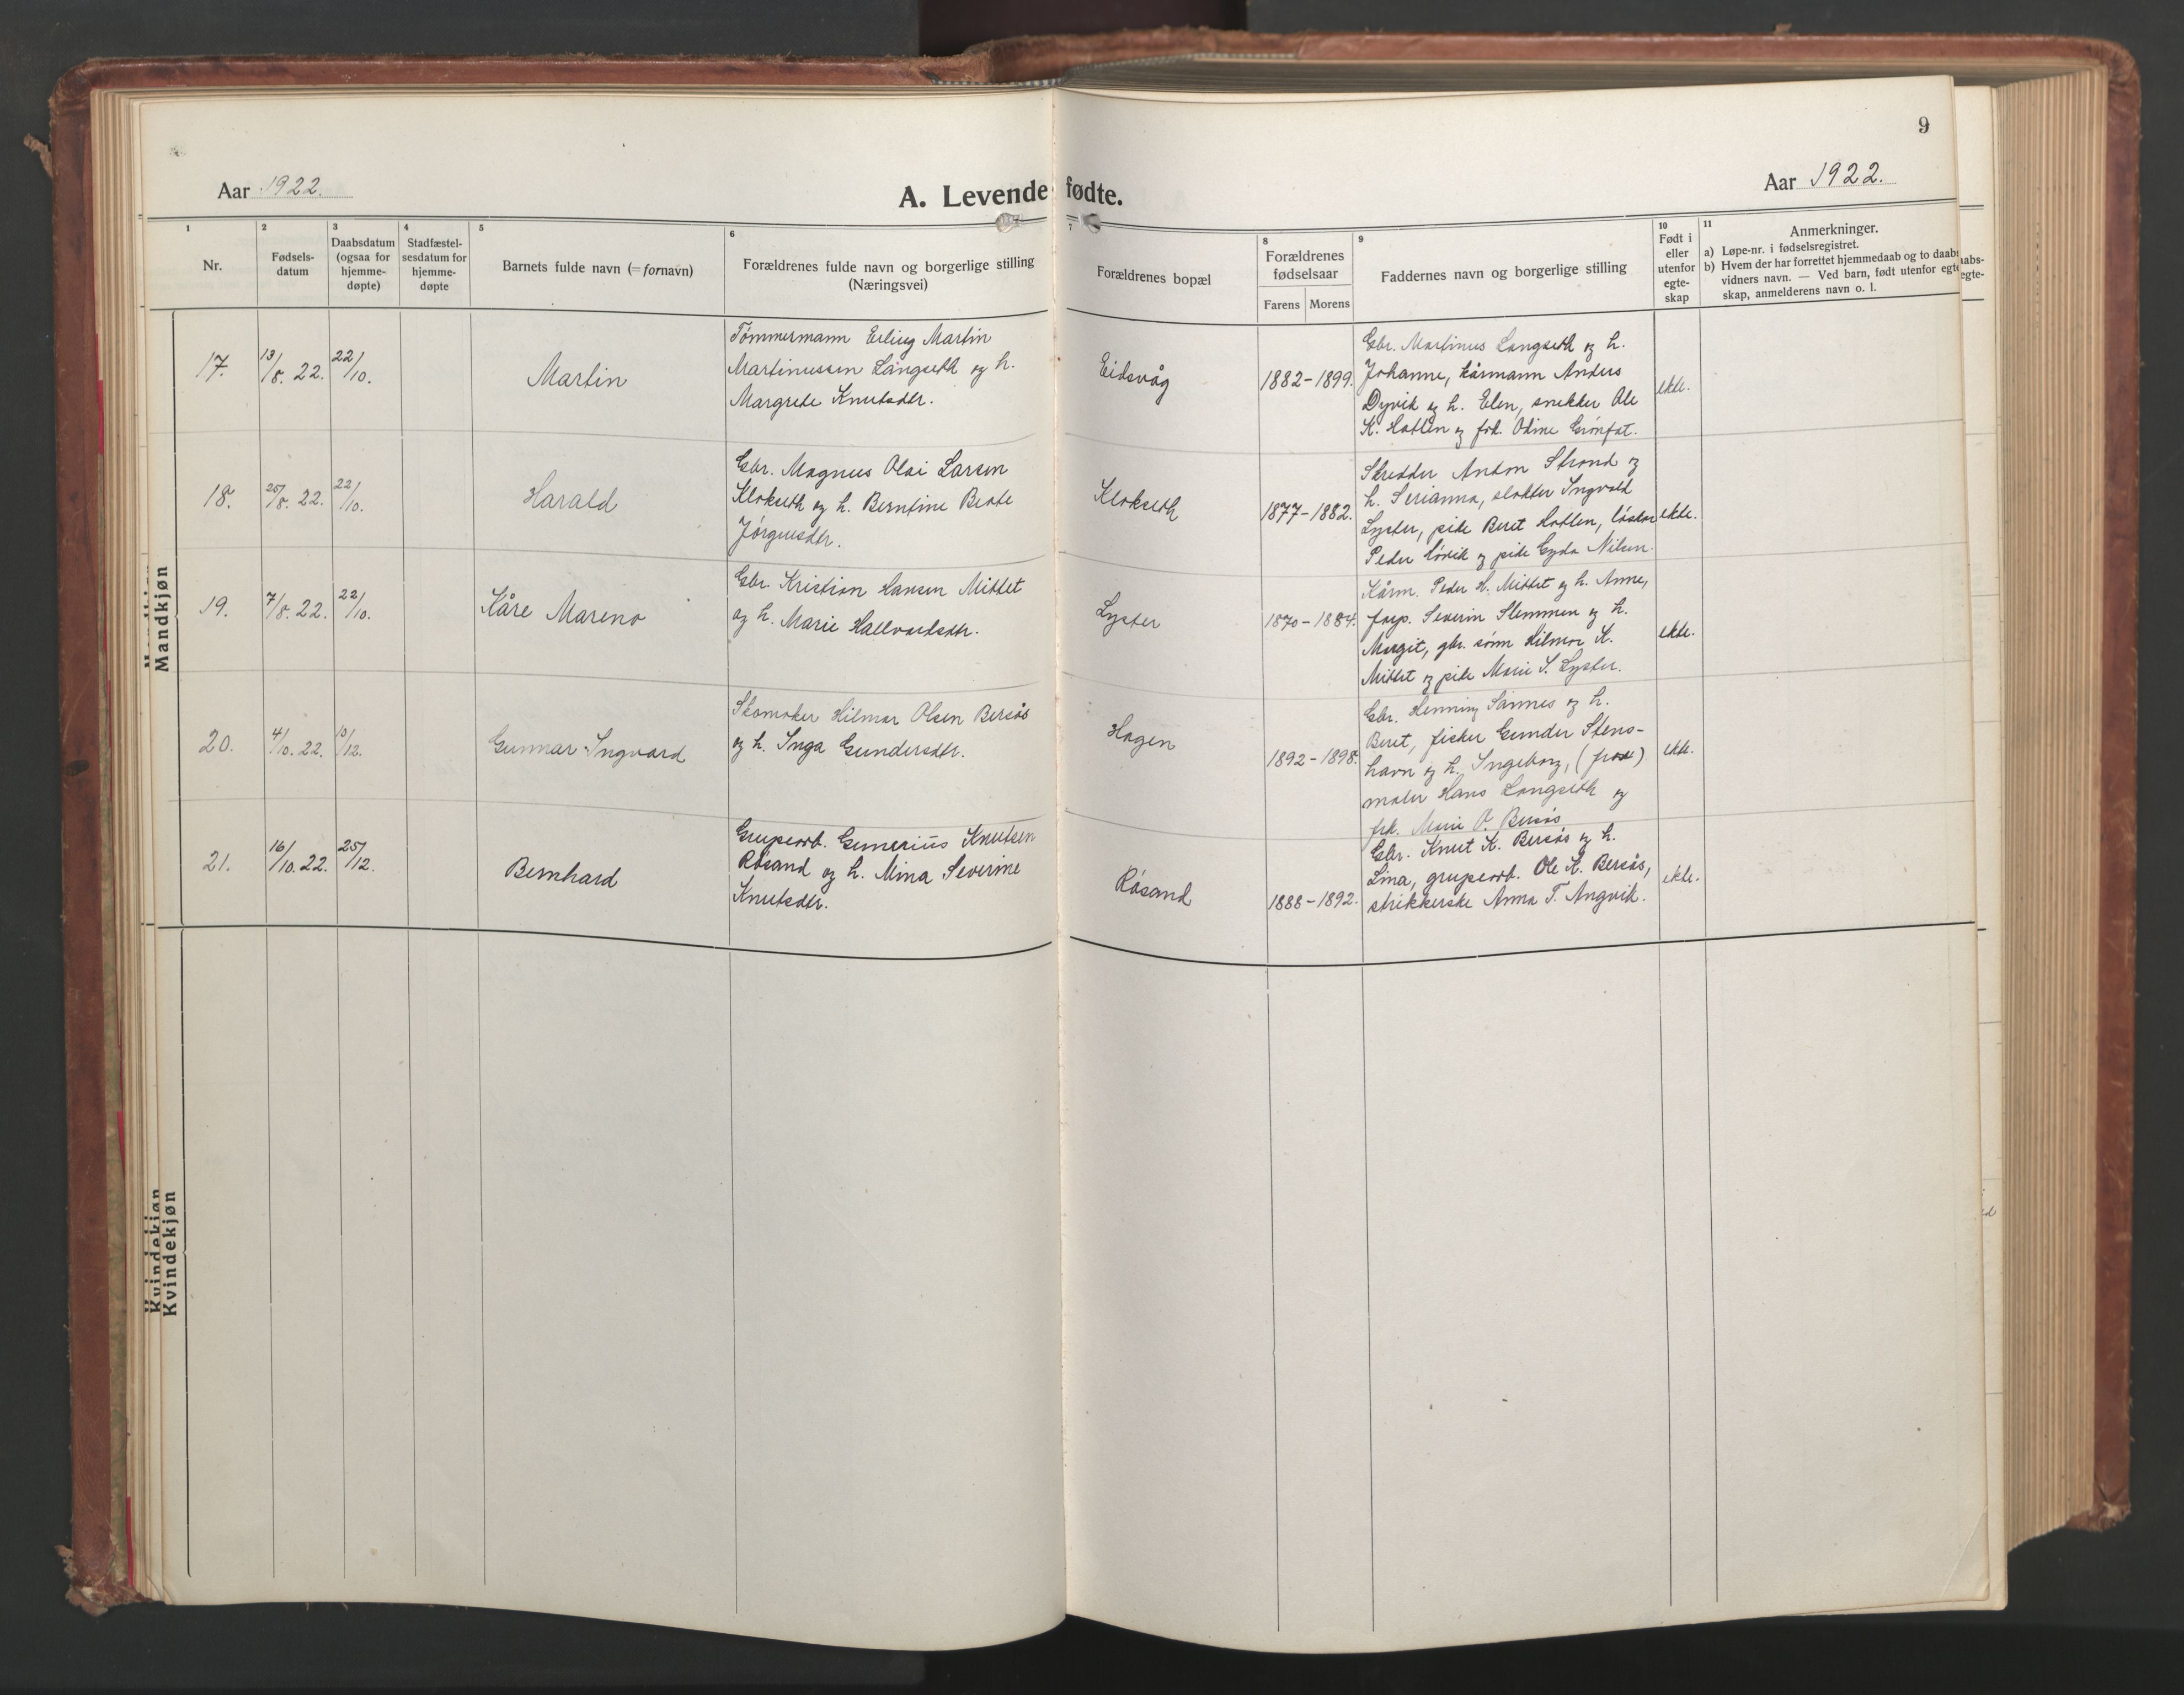 9
Aar 1922.
A. Levendefødte.
Aar 1922.
1
Nr.
2
Fødsels-
datum
3
Daabsdatum
(ogsaa for
hjemme-
døpte)
4
Stadfæstel-
sesdatum for
hjemme-
døpte
5
Barnets fulde navn (= fornavn)
6
Forældrenes fulde navn og borgerlige stilling
(Næringsvei)
7
Forældrenes bopæl
8
Forældrenes
fødselsaar
Farens Morens
9
Faddernes navn og borgerlige stilling
10
Født i
eller
utenfor
egte-
skap
11
Anmerkninger.
a) Løpe-nr. i fødselsregistret.
b) Hvem der har forrettet hjemmedaab og to daabs-
vidners navn. — Ved barn, født utenfor egte-
skap, anmelderens navn o. l.
Mandkjøn
17.
13/8. 22.
22/10.
Martin
Tømmermann Erling Martin
Martinussen Langseth og h.
Margrete Knutsdtr.
Eidsvåg
1882-1899.
Gbr. Martinus Langseth og h.
Johanne, kårmann Anders
Dyvik og h. Elen, snekker Ole
K. Hatlen og frk. Odine
ekte.
18.
25/8. 22.
22/10.
Harald
Gbr. Magnus Olai Larsen
Klokseth og h. Berntine Beate
Jörgensdtr.
Klokseth
1877-1882.
Skredder Anton Strand og
h. Serianna, slakter Ingvald
Lyster, pike Beret Hatlen,
Peder og pike Gyda Nilsen.
ekte.
19.
7/8. 22.
22/10.
Kåre Mareno
Gbr. Kristian Hansen Mittet
og h. Marie Hallvardsdtr.
Lyster
1870-1884.
Kårm. Peder H. Mittet og h. Anne,
forp. Severin Slemmen og h.
Margit, gbr. sönn Hilmar K.
Mittet og pike Marie S. Lyster.
ekte.
20.
4/10. 22.
10/12.
Gunnar Ingvard
Skomaker Hilmar Olsen Bersås
og h. Inga Gundersdtr.
Hagen
1892-1898.
Gbr. Henning Sannes og h.
Beret, fisker Gunder Stens-
havn og h. Ingeborg,
maler Hans Langseth og
frk. Marie O. Bersås
ekte.
21.
16/10. 22.
25/12.
Bernhard
Grupearb. Gunerius Knutsen
Rösand og h. Mina Severine
Knutsdtr.
Rösand
1888-1892.
Gbr. Knut K. Bersås og h.
Lina, grupearb. Ole K. Bersås,
strikkerske Anna T. Angvik.
ekte.
Kvindekjøn